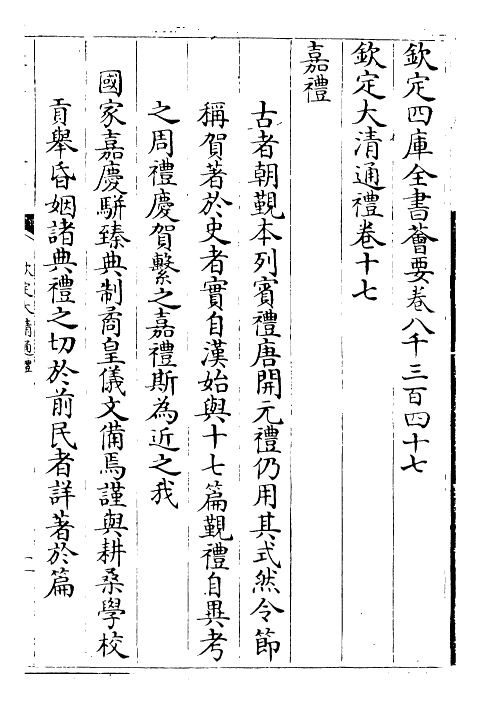 欽定四庫全書薈要卷八千三百四十七
欽定大清通禮卷十七
嘉禮
古者朝覲本列賓禮唐開元禮仍用其式然令節
稱賀著於史者實自漢始與十七篇覲禮自異考
之周禮慶賀繫之嘉禮斯為近之我
國家嘉慶駢臻典制矞皇儀文備焉謹與耕桑學校
貢舉昏姻諸典禮之切於前民者詳著於篇
欽定大清通禮
一